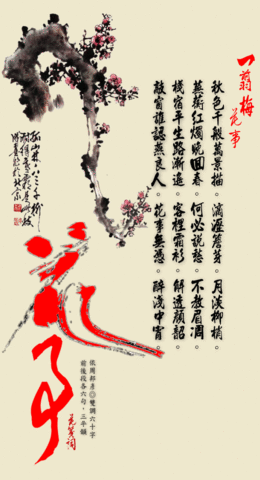 一翦梅
花事
秋色千般萬景描。滴瀝簷芽。月淡柳梢。
紅燭曉回春。何必說愁。不教眉凋。
棧宿平生路漸遙。客裡霜衫。解透顏韶。
敲窗誰認燕良人。花事無憑。醉淺中宵。
花事
依周邦彥◎雙調六十字
前後段各六句，三平韻